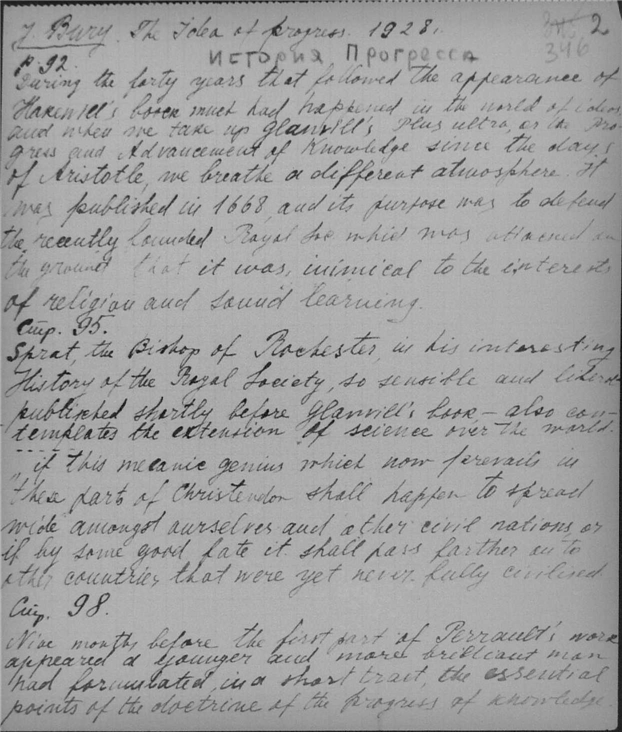 J. Bury. The Idea of progress. 1928.
2
346
История Прогресса
p. 92.
During the forty years that followed the appearance of
Hakewill's book much had happened in the world of ideas,
and when we take up Glanvill's Plus ultra, or the Pro-
gress and Advancement of Knowledge since the days
of Aristotle, we breathe a different atmosphere. It
was published in 1668, and its purpose was to defend
the recently founded Royal Soc which was attacked on
the ground that it was inimical to the interests
of religion and sound learning.
Стр. 95.
Sprat, the Bishop of Rochester, in his interesting
History of the Royal Society, so sensible and liberal
published shortly before Glanvill's book – also con-
templates the extension of science over the world.
"if this mecanic genius which now prevails in
these parts of Christendom shall happen to spread
wide amongst ourselves and other civil nations, or
if by some good fate it shall pass farther on to
other countries that were yet never fully civilised
Стр. 98.
Nine months before the first part of Perrault's work
appeared a younger and more brilliant man
had formulated, in a short tract, the essential
points of the doctrine of the progress of knowledge.